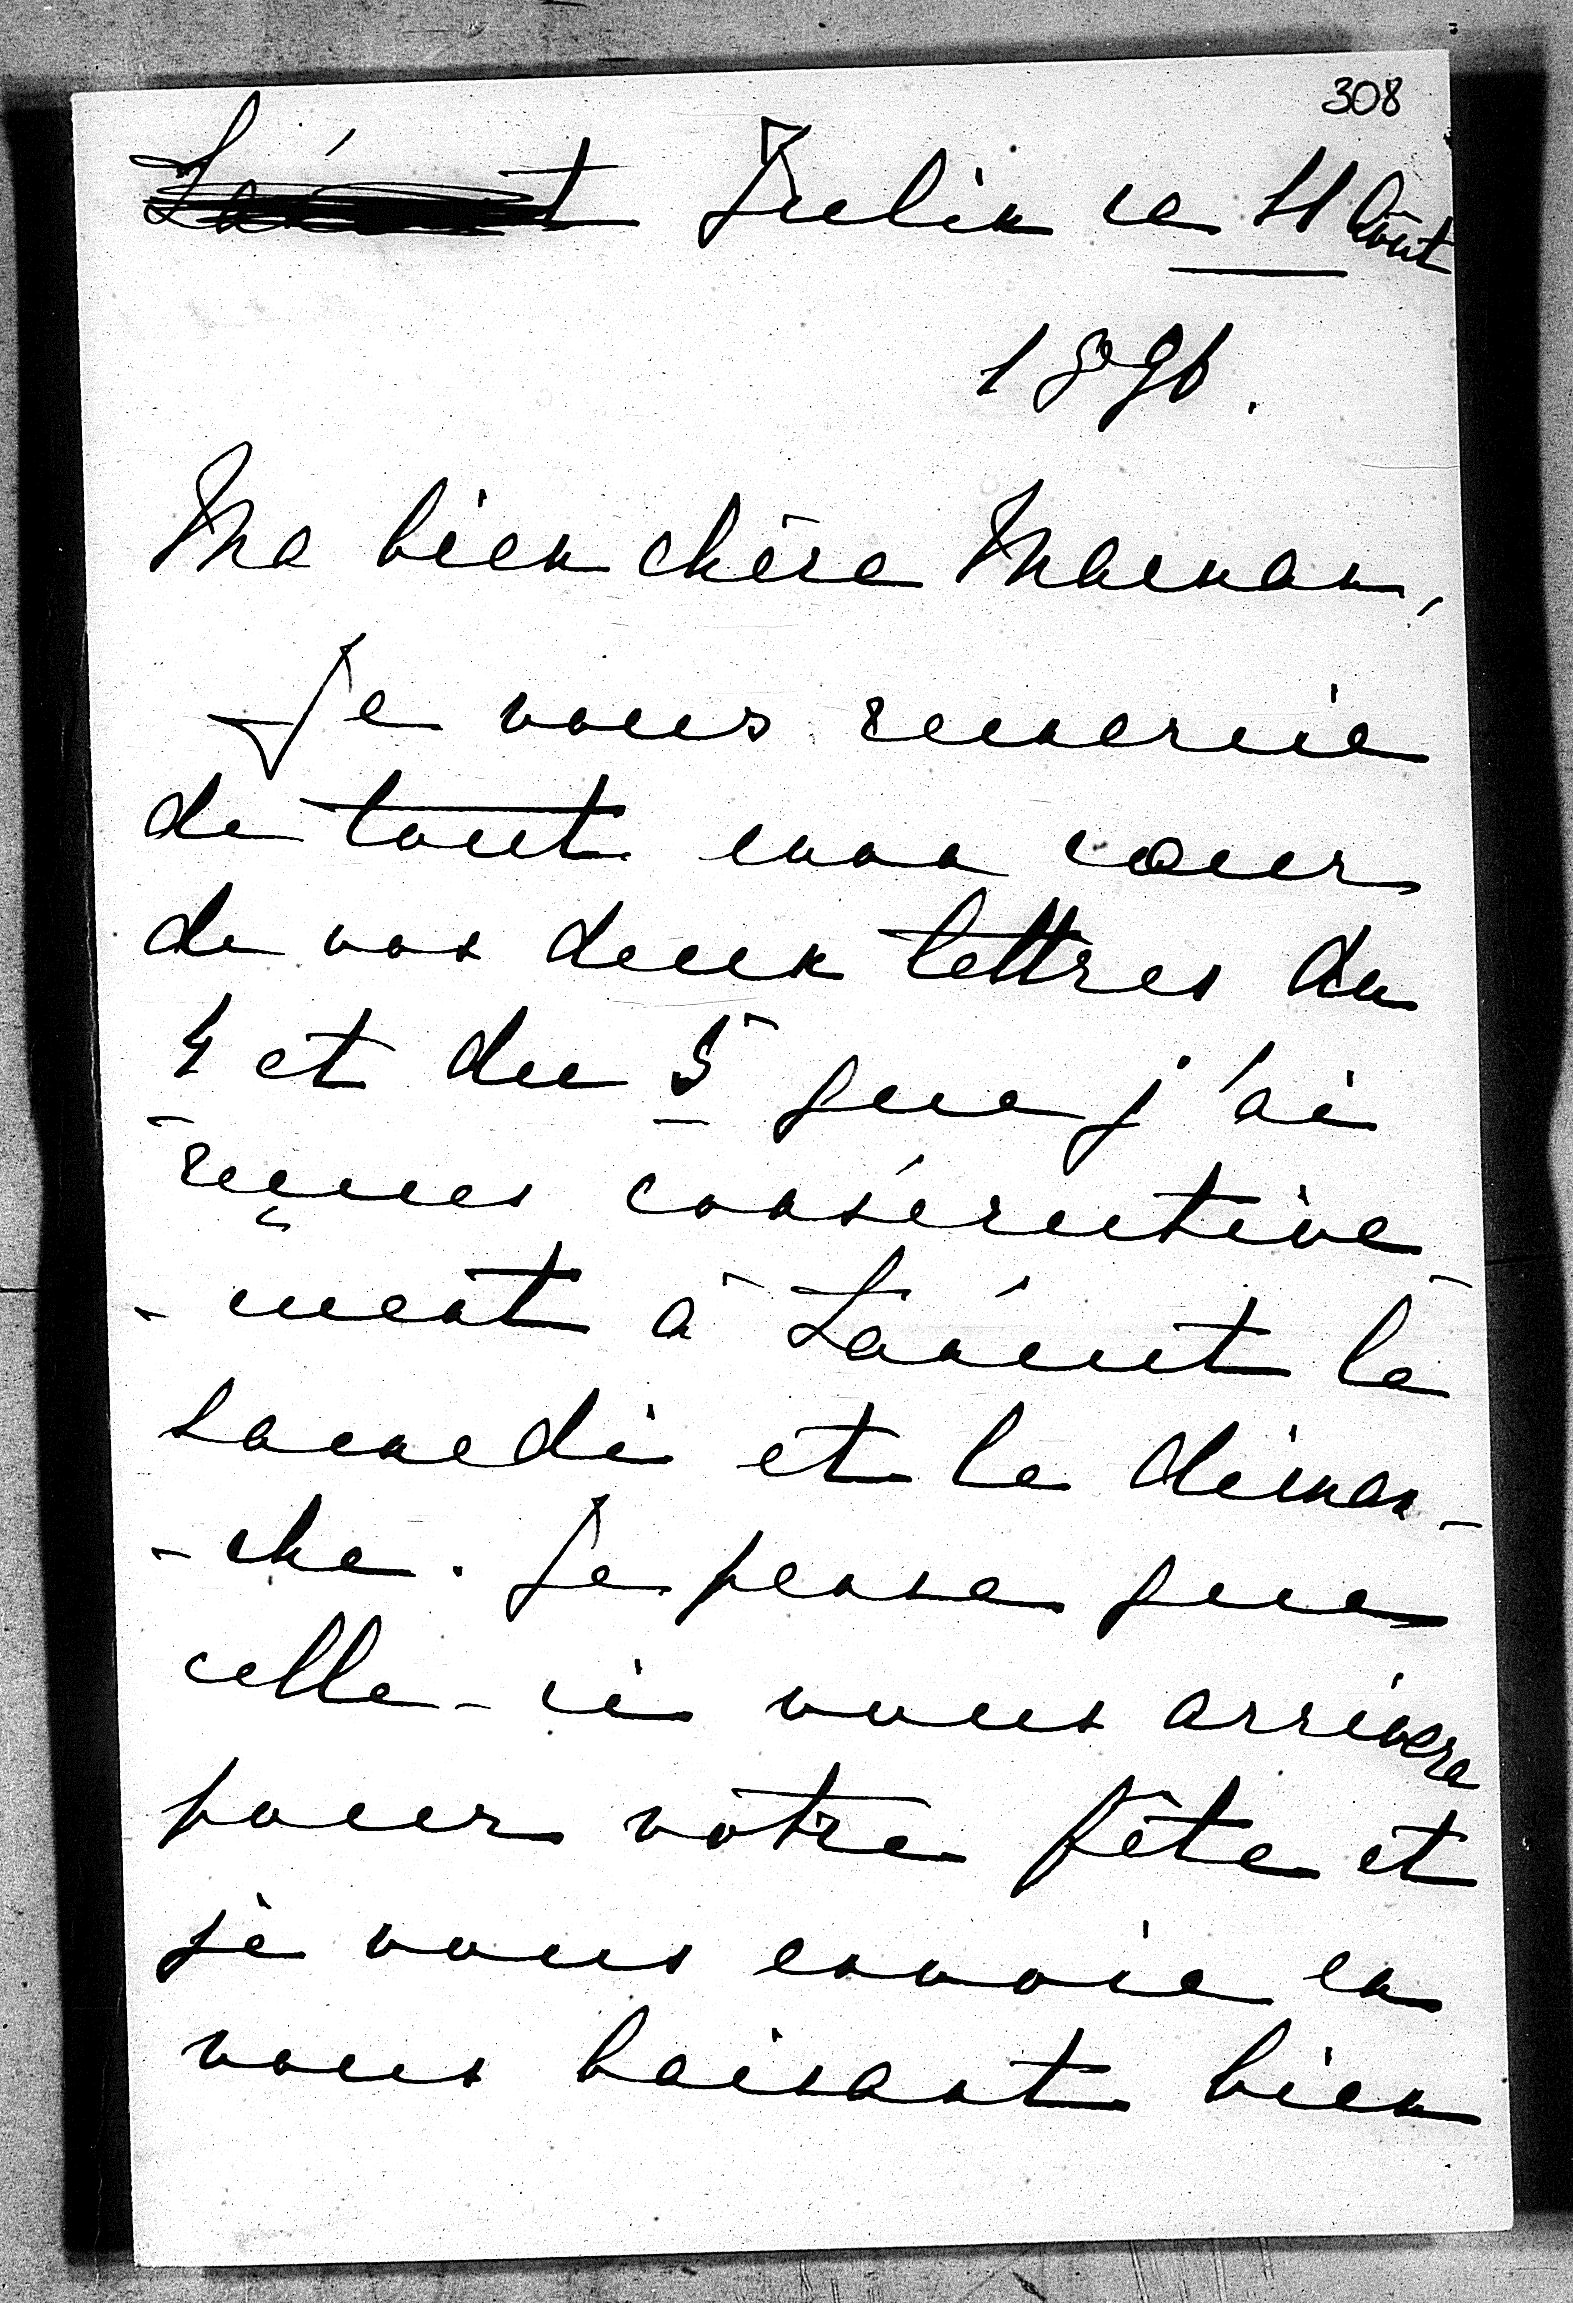 308
Lánut Iulin ce 11 Août
1896.
Ma bien chère Maman,
Je vous remercie
de tout mon cœur
de vos deux lettres du
4 et du 5 que j'ai
reçues consécutive
- ment à Lánut le
samedi et le diman-
- che. Je pense que
celle-ci vous arrivera
pour votre fête et
je vous envoie en
vous baisant bien